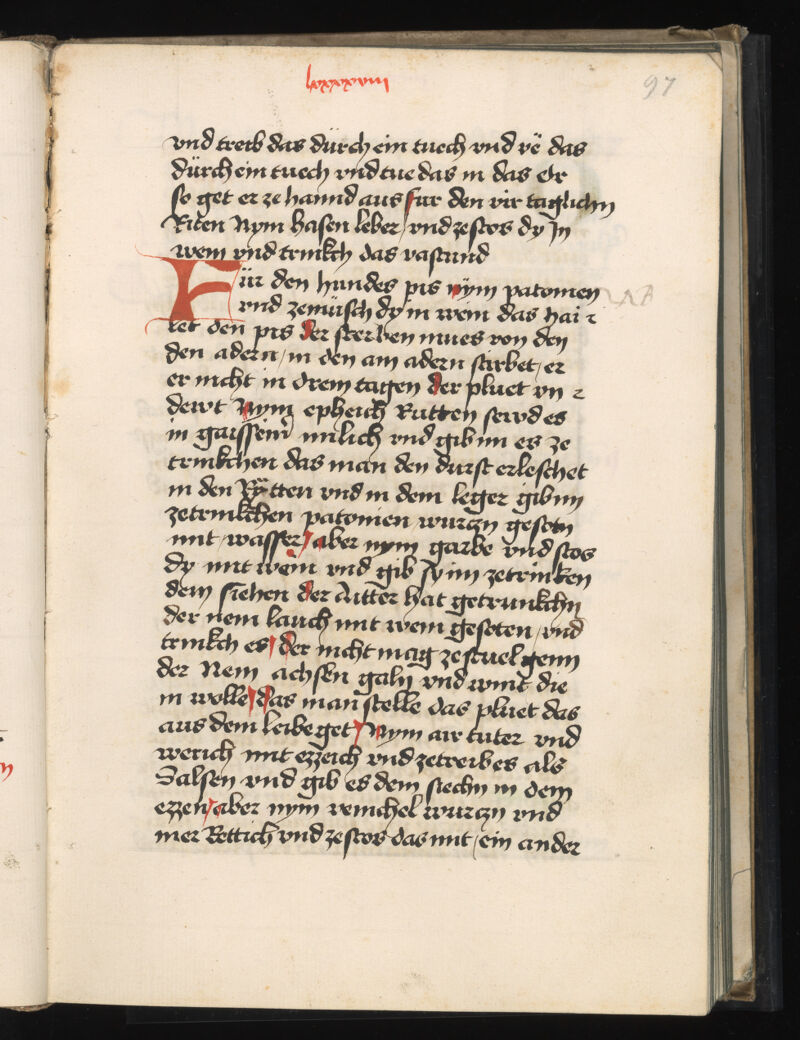 lxxxxviii
97
vnd treib das dürch ein tuech vnd vẽ das
dürch ein tuech vnd tue das in das Or
so get er ze hannd aus fur den vir taglichn
Riten Nym hasen leber vnd zestos dy Jn
wein vnd trinkch das vastund
Für den hundes pis nÿm patonien
vnd zemüsch dy in wein das hai
let den pis der sterben mues von den
den adern in den am adern starbet er
er nicht in drein tagen der pluet vn
dewt Nym epheich Rutten sewd es
in gaissein milich vnd gib im es ze
trinkchen das man den durst erleschet
in den Rÿtten vnd in dem leger gib im
zetrinkchen patonien wurczn gesotn
mit wasser aber nym garbe vnd stos
dy mit wein vnd gib sy im zetrinken
dem siehen der Aitter hat getrunkchn
der nem lauch mit wein gesoten vnd
trinkch es der nicht mag ze stuel genn
der Nem achsen galn vnd wint die
in wolle das man stelle das pluet das
aus dem leibe get Nym air tuter vnd
werich mit ezzeich vnd zetreib es als
Salsen vnd gib es dem siechn in dem
ezzen aber nym venichel wurczn vnd
mer Rettich vnd zestos das mit ein ander